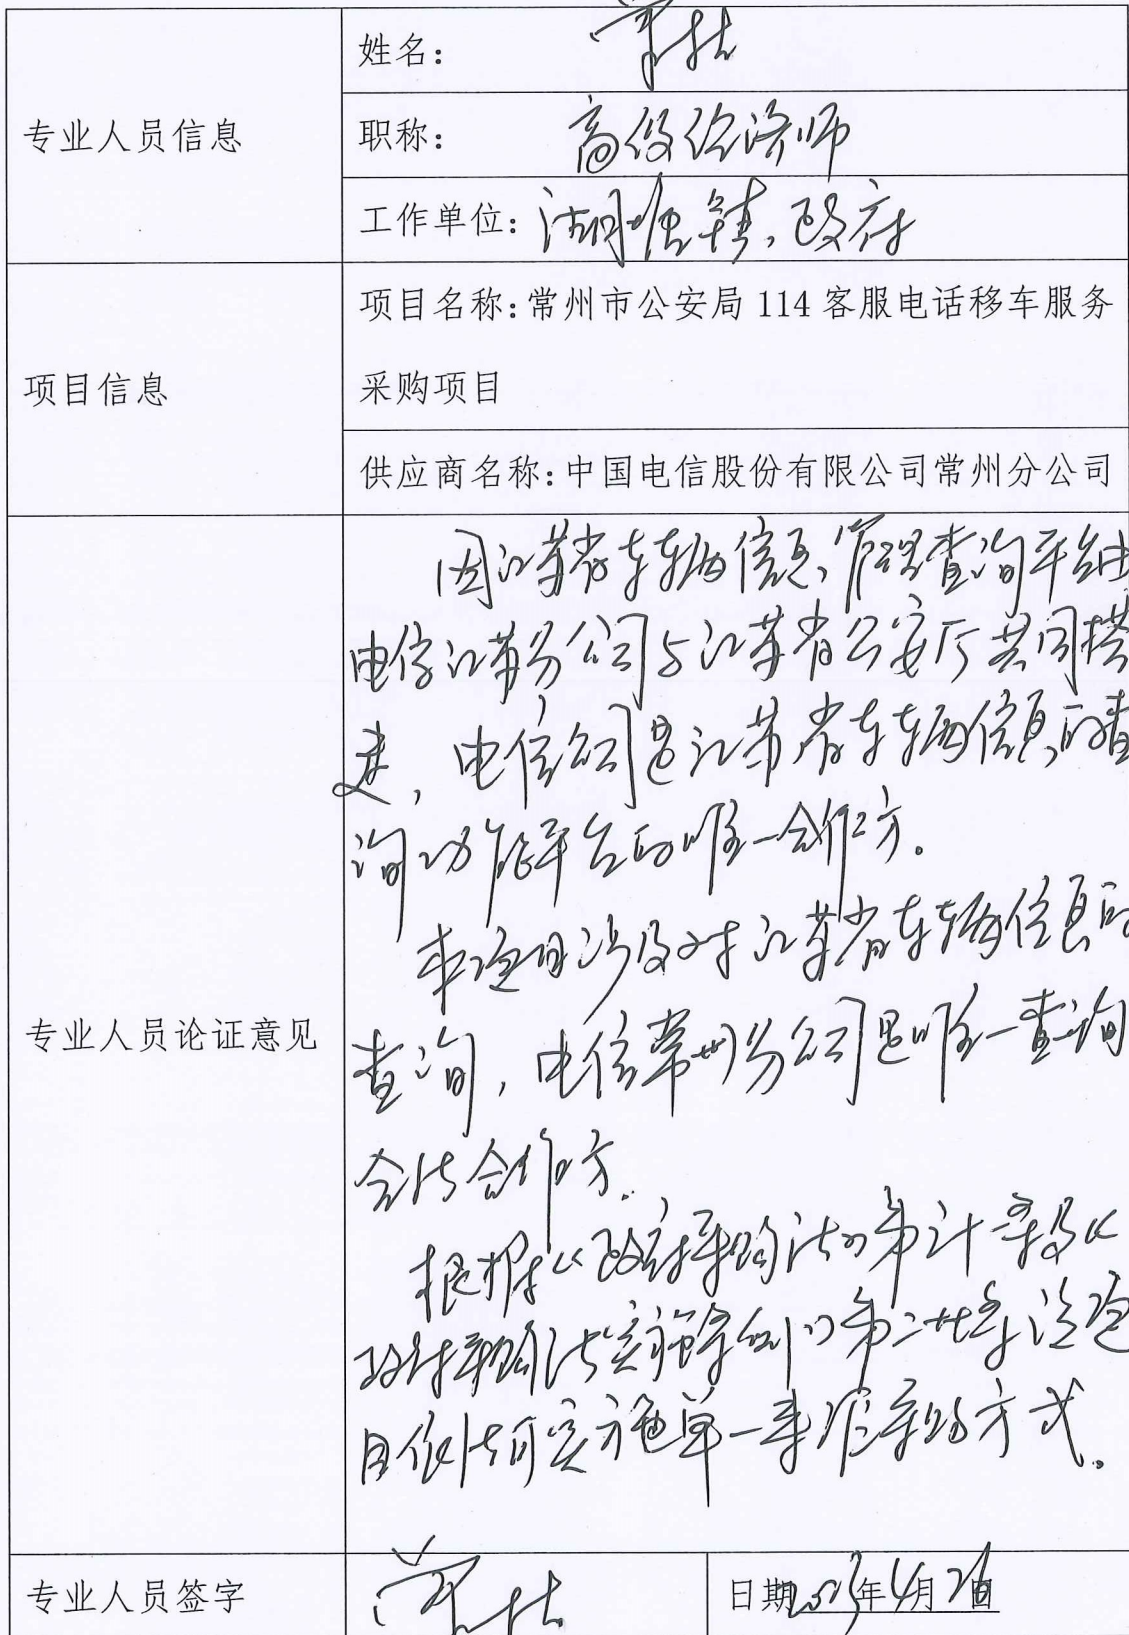 专业人员信息
姓名:
职称: 高级经济师
工作单位: 湖塘镇政府
项目信息
项目名称:常州市公安局 114 客服电话移车服务
采购项目
供应商名称:中国电信股份有限公司常州分公司
专业人员论证意见
因江苏省车辆信息管理查询平台由
电信江苏分公司与江苏省公安厅共同搭
建,电信公司是江苏省车辆信息的查
询功能平台的唯一合作方。
本项目涉及对江苏省车辆信息的
查询,电信常州分公司是唯一查询
合法合作方。
根据《政府采购法》第卅一条及《
政府采购法实施条例》第二十七条 该项
目依法可实施单一来源采购方式。
专业人员签字
日期2023年4月 日